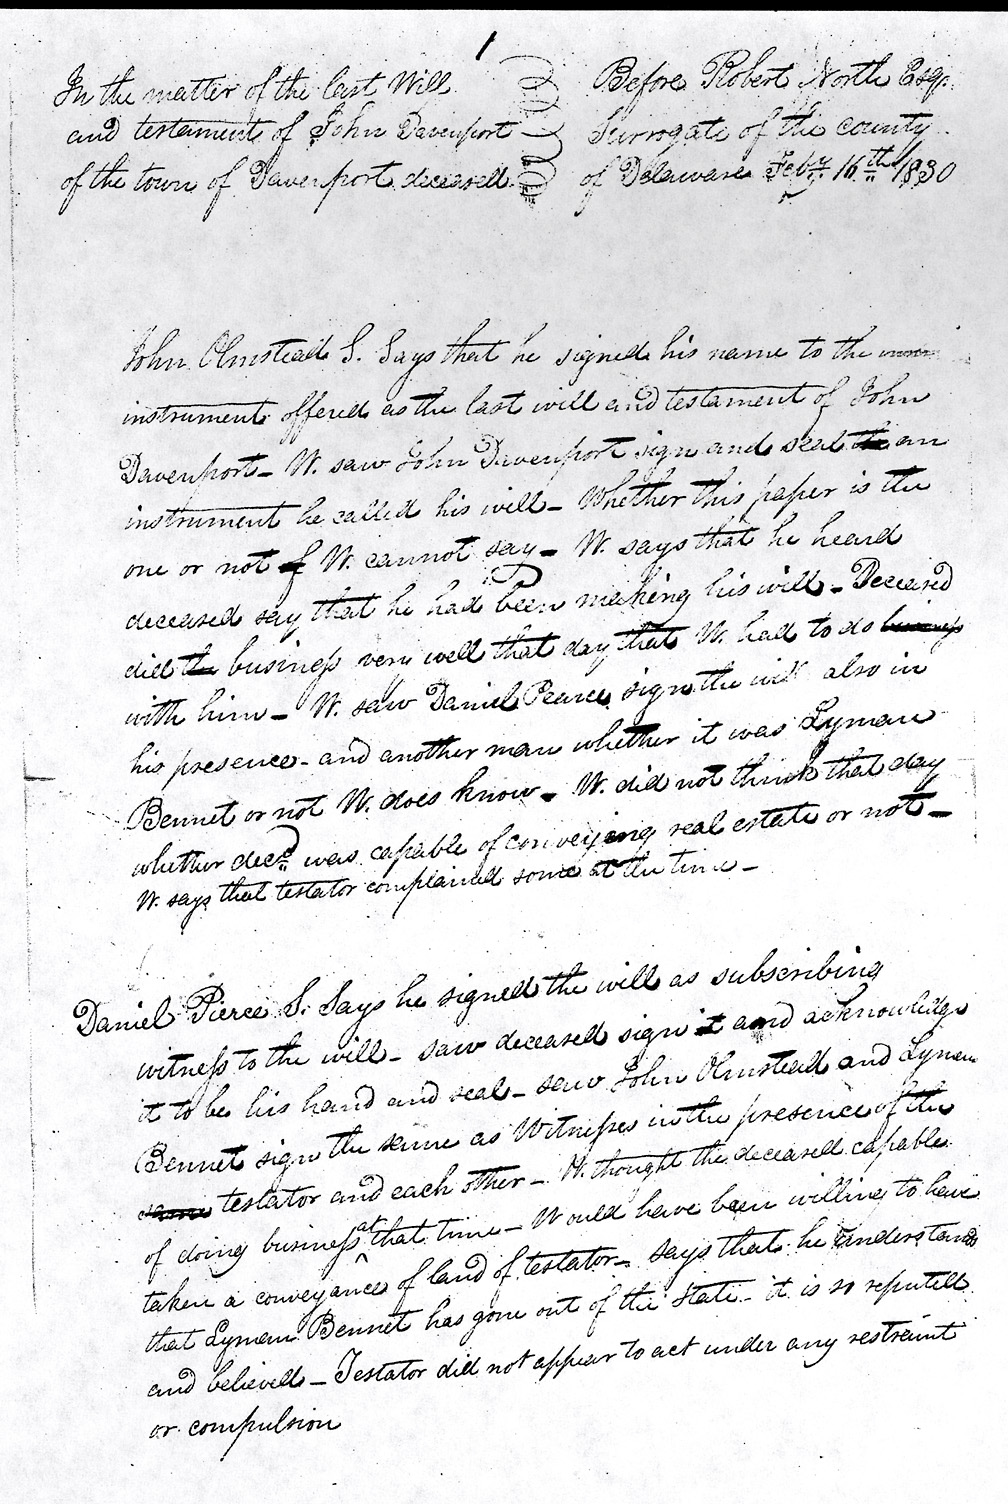 1
In the matter of the last Will
and testament of John Davenport
of the town of Davenport deceased
Before Robert North Esqr.
Surrogate of the county
of Delaware Feby. 16th 1830
John Olmstead S. Says that he signed his name to the
instrument offered as the last will and testament of John
Davenport - W. saw John Davenport sign and seal the an
instrument he called his will - Whether this paper is the
one or not of W. cannot say - W. says that he heard
deceased say that he had been making his will - Deceased
did the business very well that day that W. had to do business
with him - W. saw Daniel Pearce sign the will also in
his presence - and another man whether it was Lyman
Bennet or not W. does know - W. did not think that day
whether decd. was capable of conveying real estate or not -
W. says that testator complained some at the time -
Daniel Pierce S. Says he signed the will as subscribing
witness to the will - saw deceased sign it and acknowledge
it to be his hand and seal - saw John Olmstead and Lyman
Bennet sign the same as Witnesses in the presence of the
same testator and each other - W. thought the deceased capable
of doing business at that time - Would have been willing to have
taken a conveyance of land of testator - says that he understands
that Lyman Bennet has gone out of the State - it is so reputed
and believed - Testator did not appear to act under any restraint
or compulsion